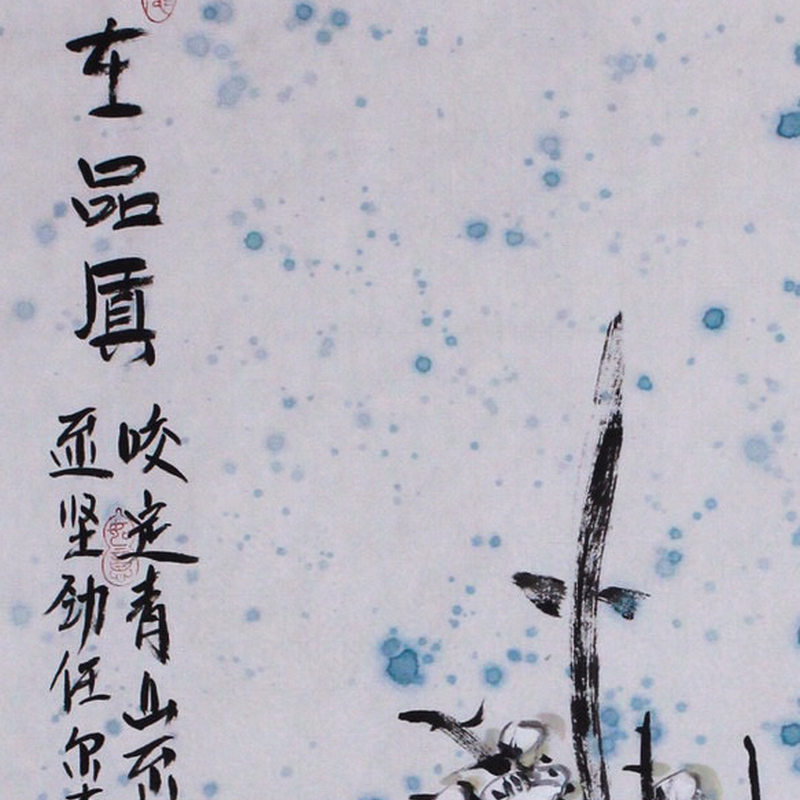 在品质
咬定青山不
还坚劲任尔